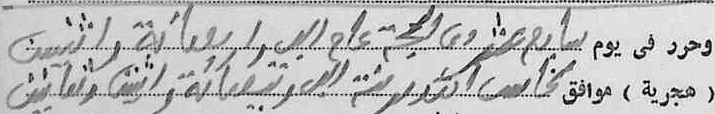 وحرر فى يوم سابع عشر ذى الحجة عام الف واربعمائة واثنين
( هجرية ) موافق خامس اكتوبر سنة الف وتسعمائة واثنين وثمانين